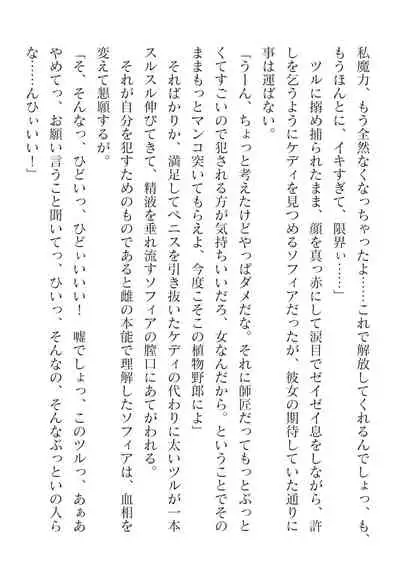 私魔力、もう全然なくなっちゃったよ……これで解放してくれるんでしょっ、も、
もうほんとに、イキすぎて、限界ぃ……」
　ツルに搦め捕られたまま、顔を真っ赤にして涙目でゼイゼイ息をしながら、許
しを乞うようにケディを見つめるソフィアだったが、彼女の期待していた通りに
事は運ばない。
「うーん、ちょっと考えたけどやっぱダメだな。それに師匠だってもっとぶっと
くてすごいので犯される方が気持ちいいだろ、女なんだから。ということでその
ままもっとマンコ突いてもらえよ、今度こそこの植物野郎によ」
　そればかりか、満足してペニスを引き抜いたケディの代わりに太いツルが一本
スルスル伸びてきて、精液を垂れ流すソフィアの膣口にあてがわれる。
　それが自分を犯すためのものであると雌の本能で理解したソフィアは、血相を
変えて懇願するが。
「そ、そんなのっ、ひどいっ、ひどぃいいい！　嘘でしょっ、このツルっ、あぁあ
やめてっ、お願い言うこと聞いてっ、ひいっ、そんなの、そんなぶっといの入ら
な……んひぃいい！」